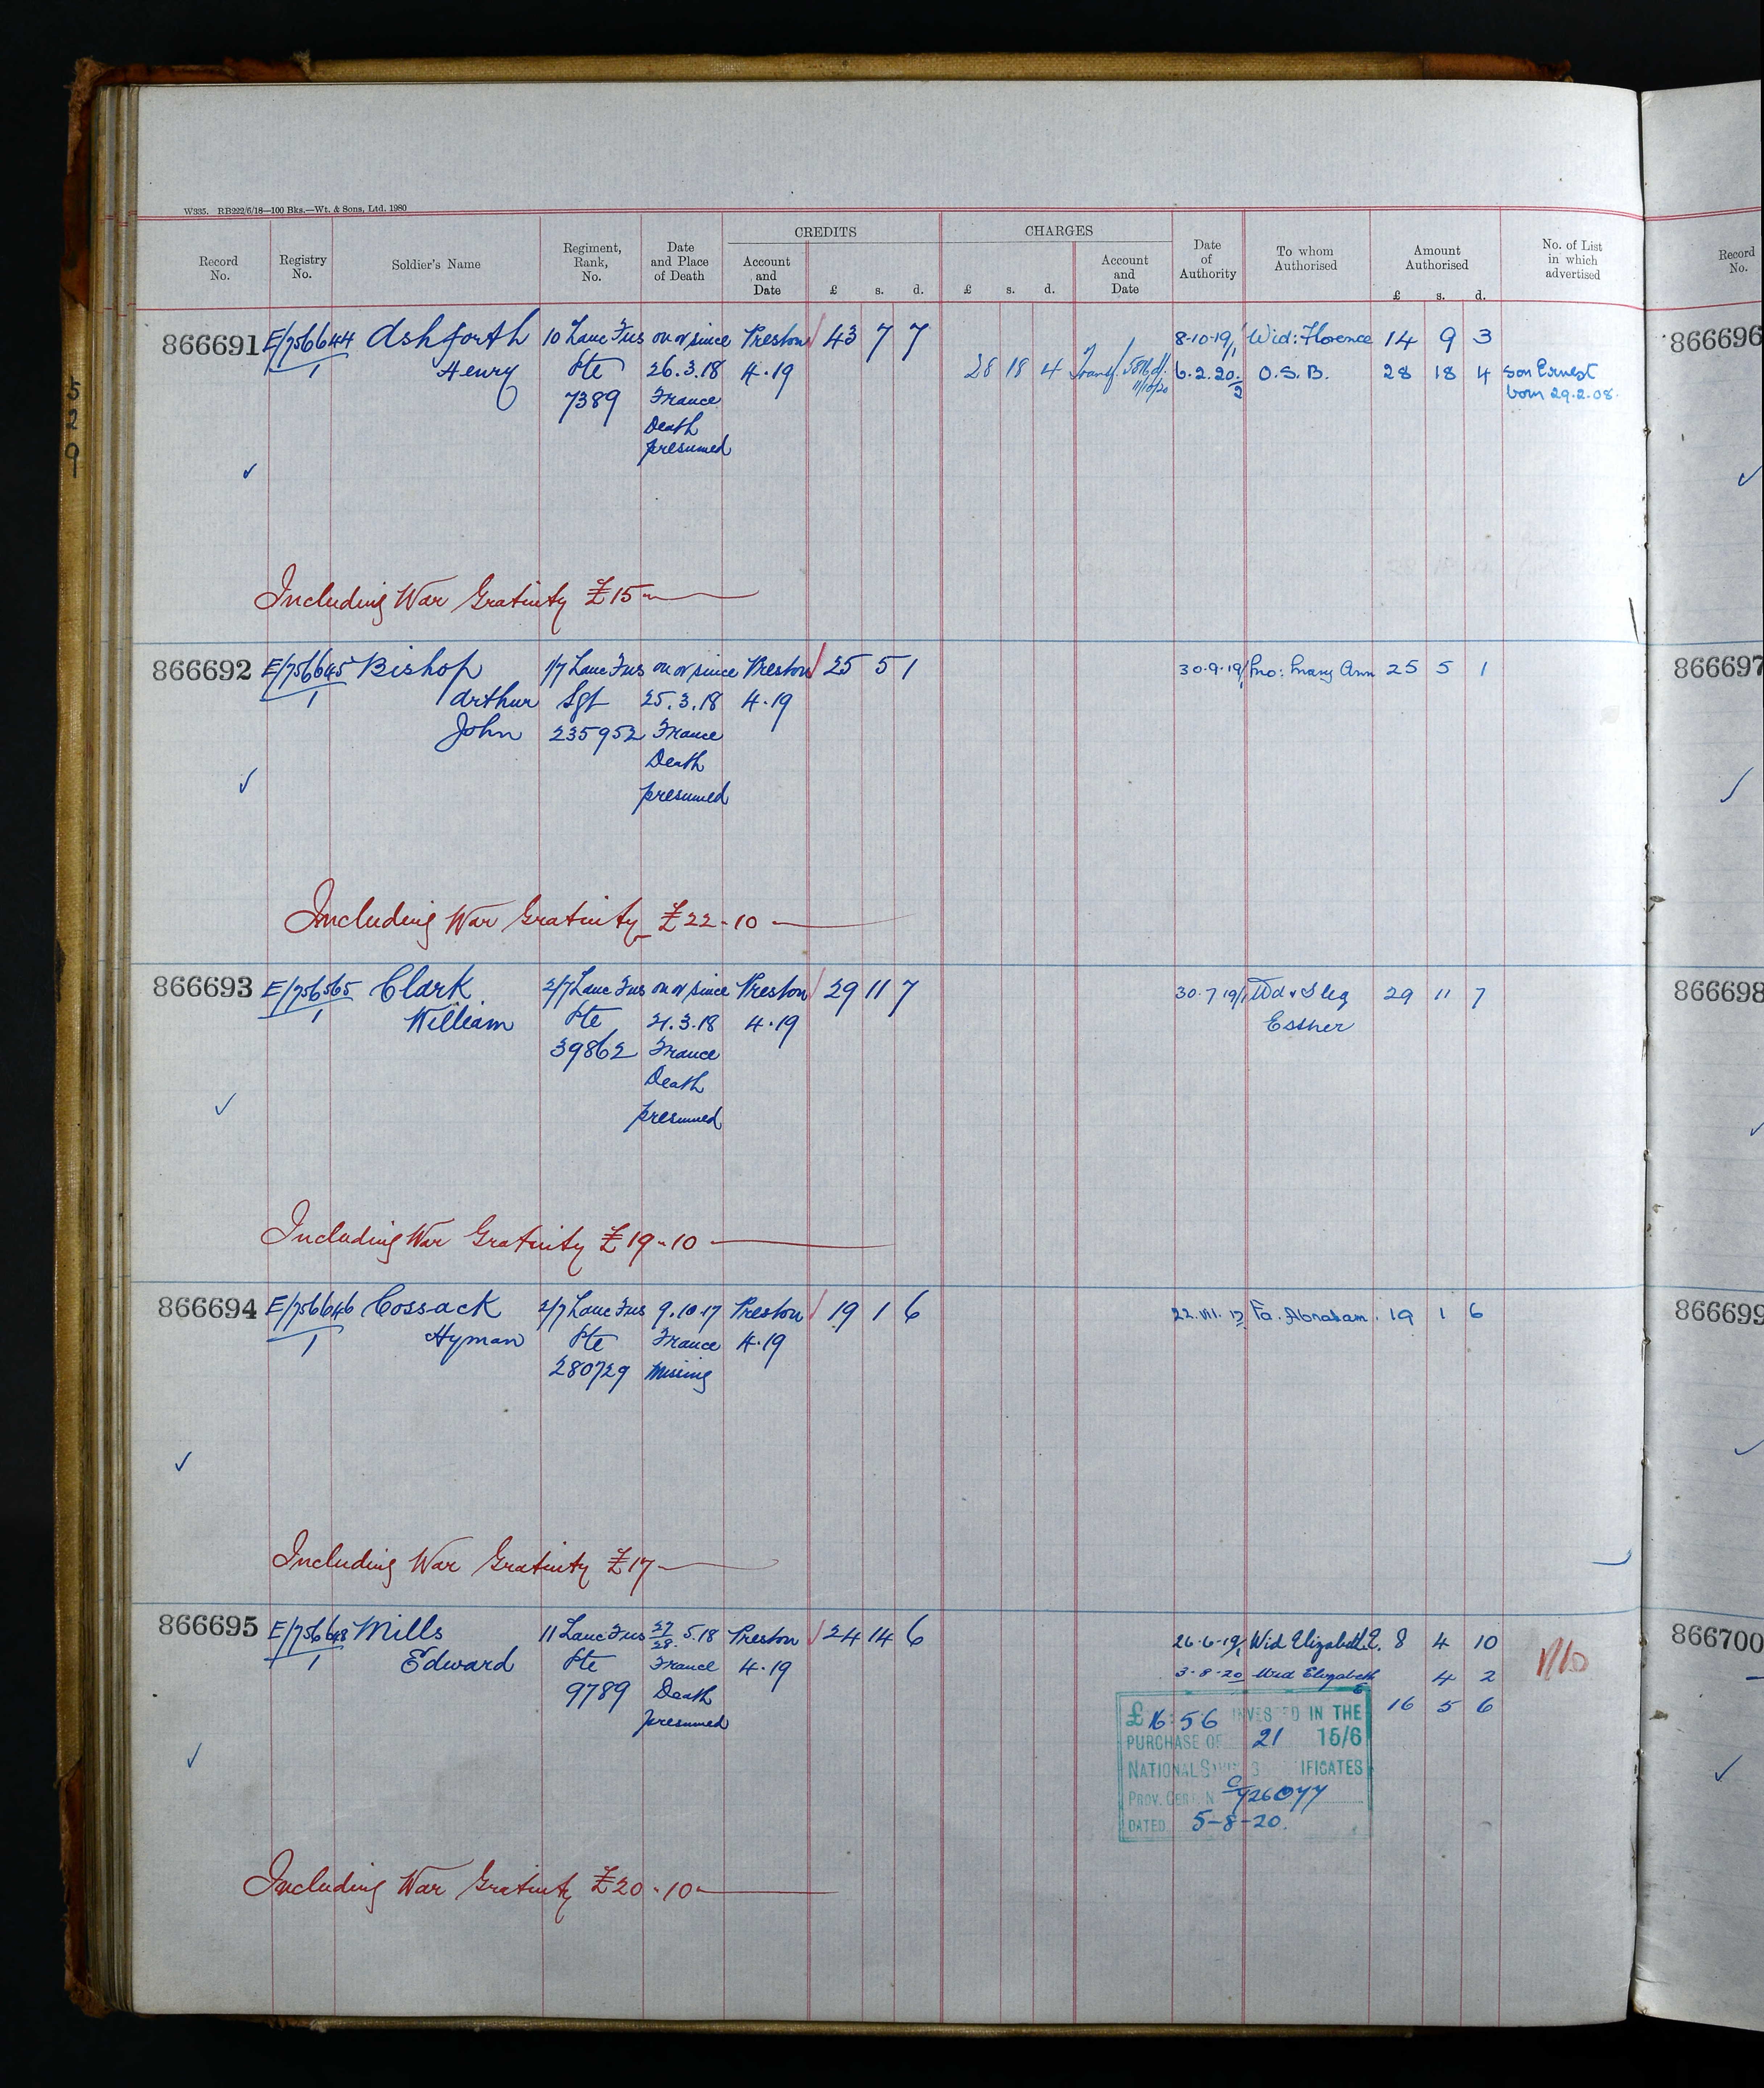 W335. RB222/6/18—100 Bks.—Wt. & Sons, Ltd. 1980
Record No.
Registry No.
Soldier's Name
Regiment, Rank, No.
Date and Place of Death
CREDITS
Account and Date
£ s. d.
CHARGES
£ s. d.
Account and Date
Date of Authority
To whom Authorised
Amount Authorised
£ s. d.
No. of List in which advertised
Record No.
866691 E/756644 Ashforth 10 Lanc Fus on or since Preston 43 7 7 8-10-19/1 Wid: Florence 14 9 3
1 Henry Pte 26.3.18 4.19 28 18 4 Transf 6.2.20/2 O.S.B. 28 18 4 son Ernest
11/10/20
7389 France born 29.2.08.
Death
presumed
Including War Gratuity £15
866692 E/756645 Bishop 1/7 Lanc Fus on or since Preston 25 5 1 30.9.19/1 Mo: Mary Ann 25 5 1
1 Arthur Sgt 25.3.18 4.19
John 235952 France
Death
presumed
Including War Gratuity £22-10
866693 E/756565 Clark 2/7 Lanc Fus on or since Preston 29 11 7 30.7.19/1 Wd & S leg 29 11 7
1 William Pte 21.3.18 4.19 Esther
39862 France
Death
presumed
Including War Gratuity £19-10
866694 E/756646 Cossack 2/7 Lanc Fus 9.10.17 Preston 19 1 6 22.VII. Fa. Abraham. 19 1 6
1 Hyman Pte France 4.19
280729 Missing
Including War Gratuity £17
866695 E/756648 Mills 11 Lanc Fus 27/28. 5.18 Preston 24 14 6 26.6.19/1 Wid Elizabeth E. 8 4 10
1 Edward Pte France 4.19 3-8-20 Wid Elizabeth E 4 2
9789 Death 16 5 6
presumed
£ 16.5.6 INVESTED IN THE
PURCHASE OF 21 15/6
NATIONAL SAVINGS CERTIFICATES
PROV. CERT. N C/926077
DATED 5-8-20.
Including War Gratuity £20-10
866696
866697
866698
866699
866700
5
2
9